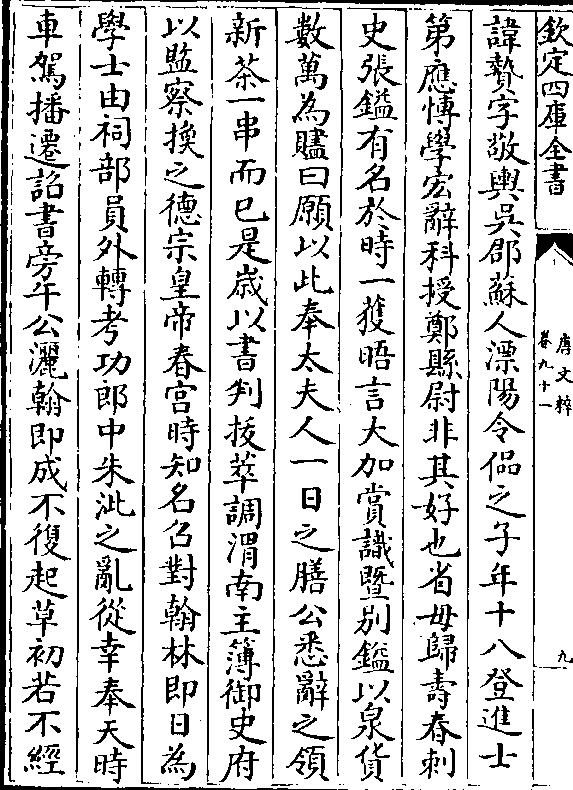 欽定四庫全書
唐文粹
卷九十一
九
諱贄字敬輿吳郡蘇人溧陽令偘之子年十八登進士
第應博學宏辭科授鄭縣尉非其好也省母歸壽春刺
史張鎰有名於時一獲晤言大加賞識暨别鎰以泉貨
數萬為贐曰願以此奉太夫人一日之膳公悉辭之領
新茶一串而已是嵗以書判拔萃調渭南主簿御史府
以監察換之德宗皇帝春宫時知名召對翰林即日為
學士由祠部員外轉考功郎中朱泚之亂從幸奉天時
車駕播遷詔書旁午公灑翰即成不復起草初若不經